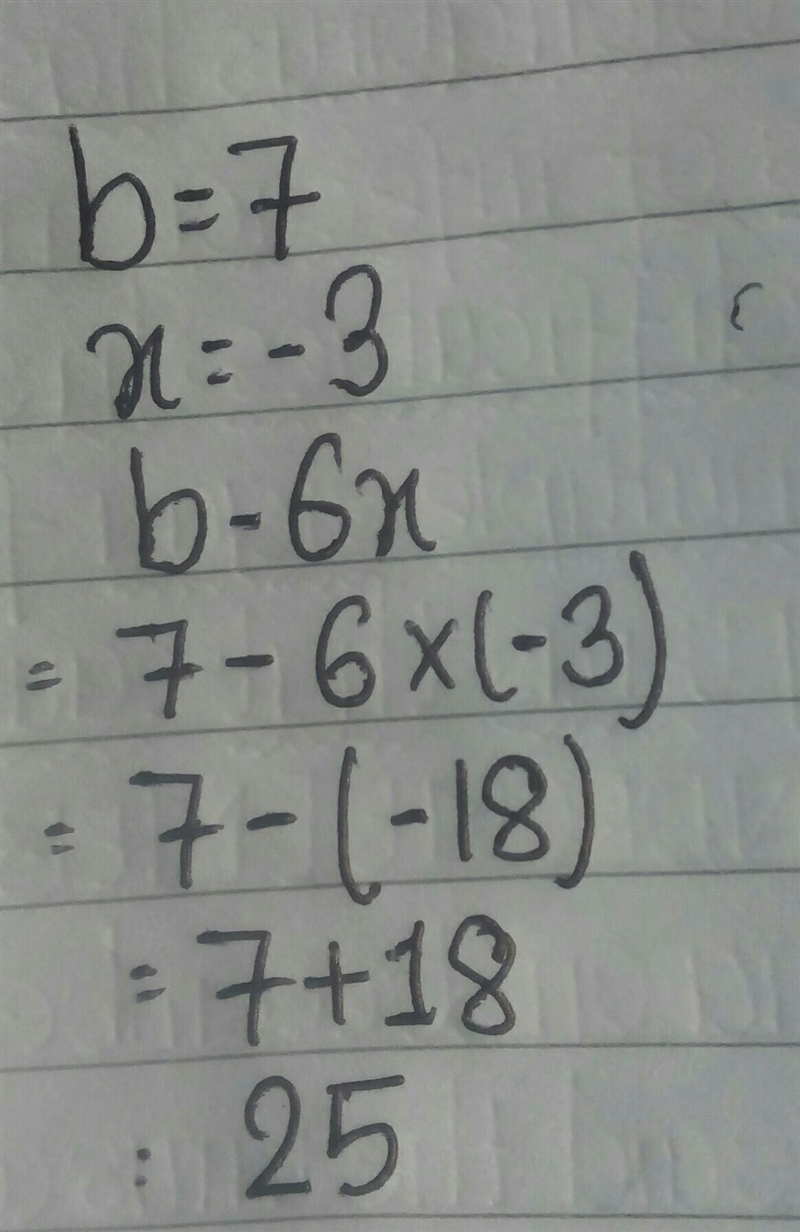 b=7
x=-3
b-6x
= 7-6×(-3)
= 7-(-18)
= 7+18
: 25